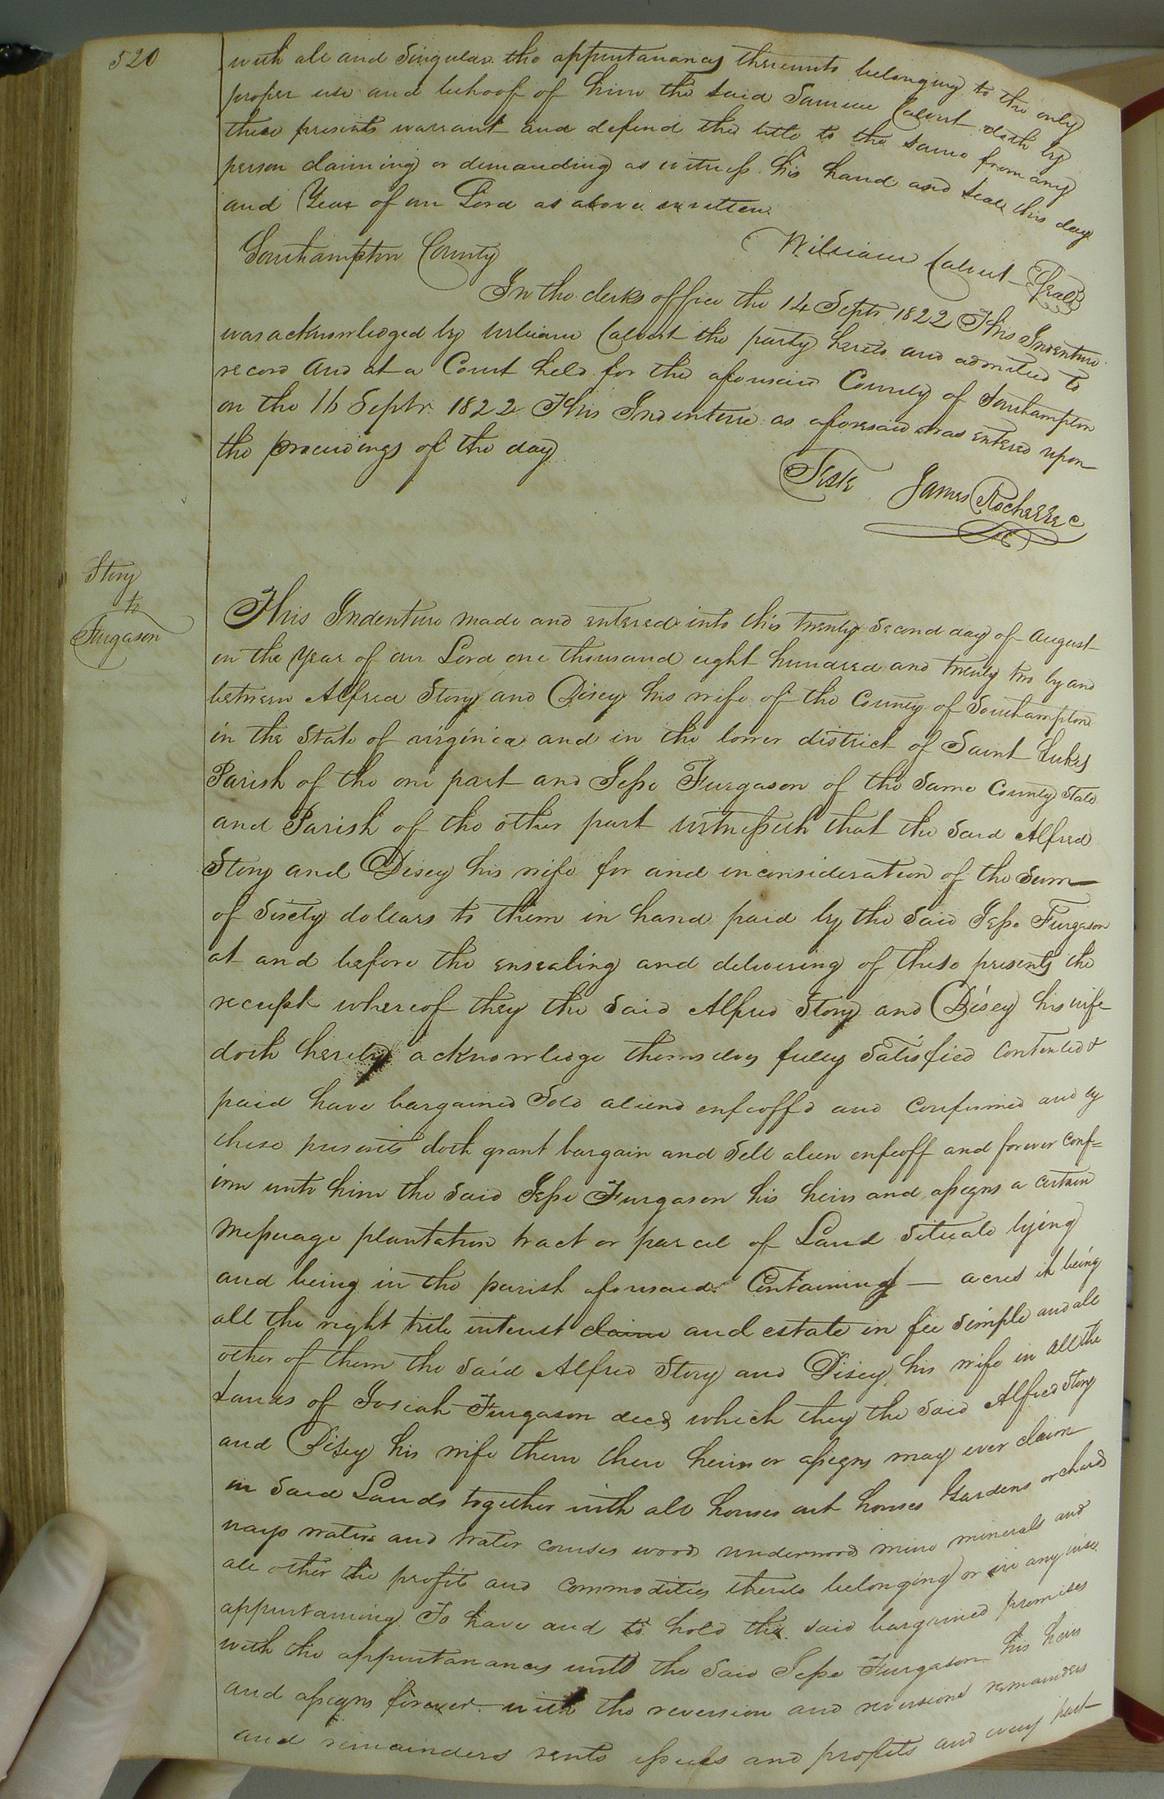 520
with all and Singular the appurtanancs thereunto belonging to the only
proper use and behoof of him the said Samuel Calvert doth by
these presents warrant and defend the title to the same from any
person claiming or demanding as witness his hand and seal this day
and Year of our Lord as above written
William Calvert Seal
Southampton County
In the clerks office the 14 Septr 1822 This Indenture
was acknowledged by William Calvert the party hereto and admitted to
record And at a Court held for the aforesaid County of Southampton
on the 16 Septr. 1822 This Indenture as aforesaid was entered upon
the proceedings of the day
Teste James Rochelle c
Story
to
Furgason
This Indenture made and entered into this twenty second day of August
in the Year of our Lord one thousand eight hundred and twenty two by and
between Alfred Story and Disey his wife of the County of Southampton
in the State of virginia and in the lower district of Saint Lukes
Parish of the one part and Jesse Furgason of the Same County State
and Parish of the other part witnesseth that the Said Alfred
Story and Disey his wife for and in consideration of the Sum
of Sixty dollars to them in hand paid by the Said Jesse Furgason
at and before the ensealing and delivering of these presents the
receipt whereof they the Said Alfred Story and Disey his wife
doth hereby acknowledge themselves fully Satisfied Contented &
paid have bargained Sold aliend enfeoffd and Confirmed and by
these presents doth grant bargain and Sell alien enfeoff and forever Conf=
irm unto him the Said Jesse Furgason his heirs and assigns a certain
messuage plantation tract or parcel of Land Situate lying
and being in the parish aforesaid Containing — acres it being
all the right title interest claim and estate in fee Simple and all
other of them the Said Alfred Story and Disey his wife in all the
Lands of Josiah Furgason decd which they the Said Alfred Story
and Disey his wife them there heirs or assigns may ever claim
in Said Lands together with all houses out houses Gardens orchard
ways waters and water courses wood underwood mine minerals and
all other the profits and commodities thereto belonging or in any wise
appurtaining To have and to hold the said bargained premises
with the appurtanances unto the Said Jesse Furgason his heirs
and assigns forever with the reversion and reversions remainders
and remainders rents issues and profits and every part